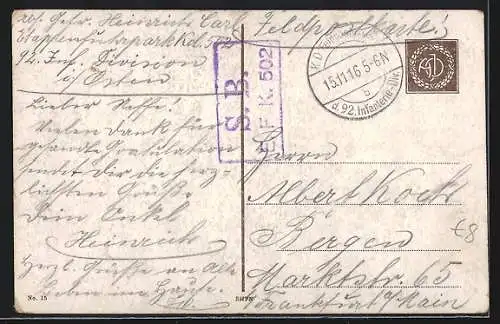 Abs. Gefr. Heinrich Carl
Etappenfuhrparkkol. 502
92. Inf. Division
i/Osten
Lieber Neffe!
Vielen Dank für
gesandte Gratulation
sendet Dir die herz-
lichsten Grüße
Dein Onkel
Heinrich
Herzl. Grüße an alle
Lieben im Hause.
No. 15
S. B.
E. F. K. 502
Feldpostkarte!
15.11.16 5-6N
b
d. 92. Infanterie-Div.
Herrn
Albert Koch
Bergen
Marktstr. 65
Frankfurt a/Main
€8